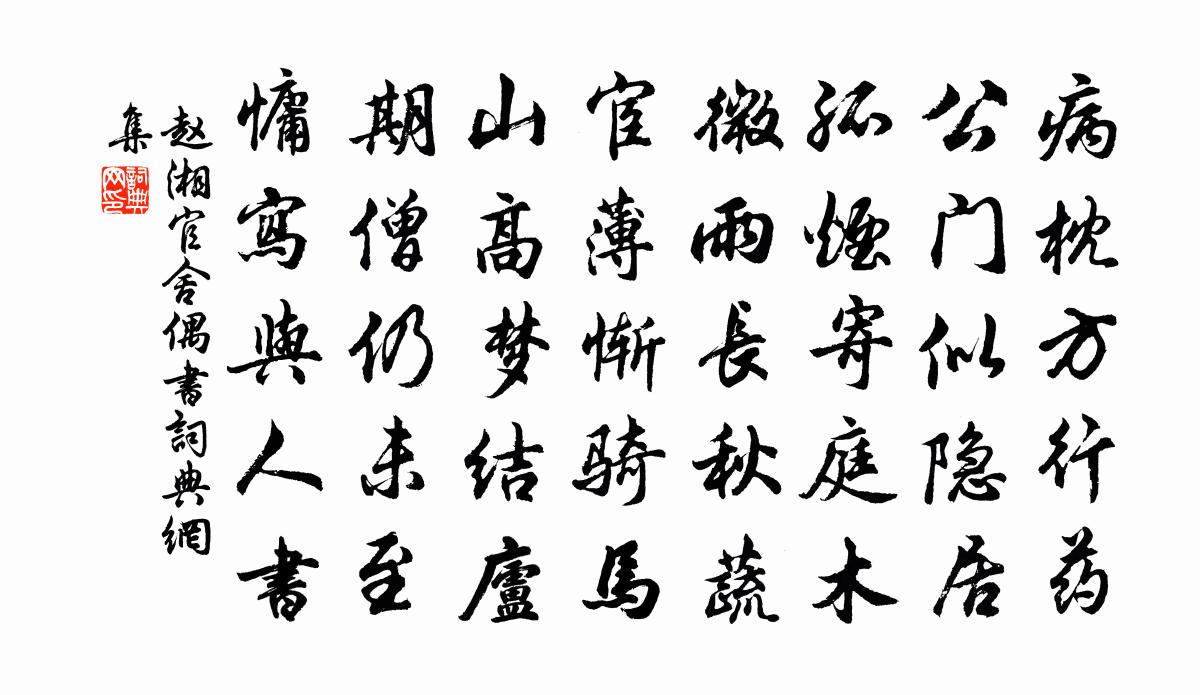 病枕方行药
公门似隐居
孤煙寄庭木
微雨長秋蔬
官薄慚骑馬
山高梦结廬
期僧仍未至
慵寫與人書
赵湘官舍偶書詞典網
集
詞典
网印